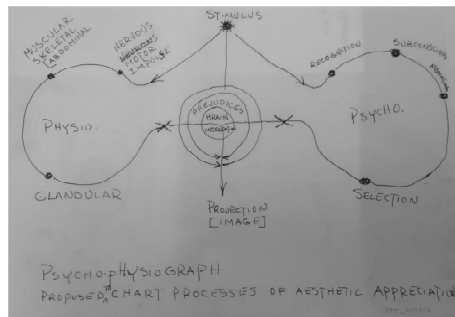 STIMULUS
MUSCULAR
SKELETAL
ABDOMINAL
NERVOUS
MOTOR
IMPULSE
RECOGNITION
SUBCONSCIOUS
PREJUDICES
BRAIN
PHYSIO.
PSYCHO.
GLANDULAR
SELECTION
PROJECTION
[IMAGE]
PSYCHO-PHYSIOGRAPH
PROPOSED TO CHART PROCESSES OF AESTHETIC APPRECIATION